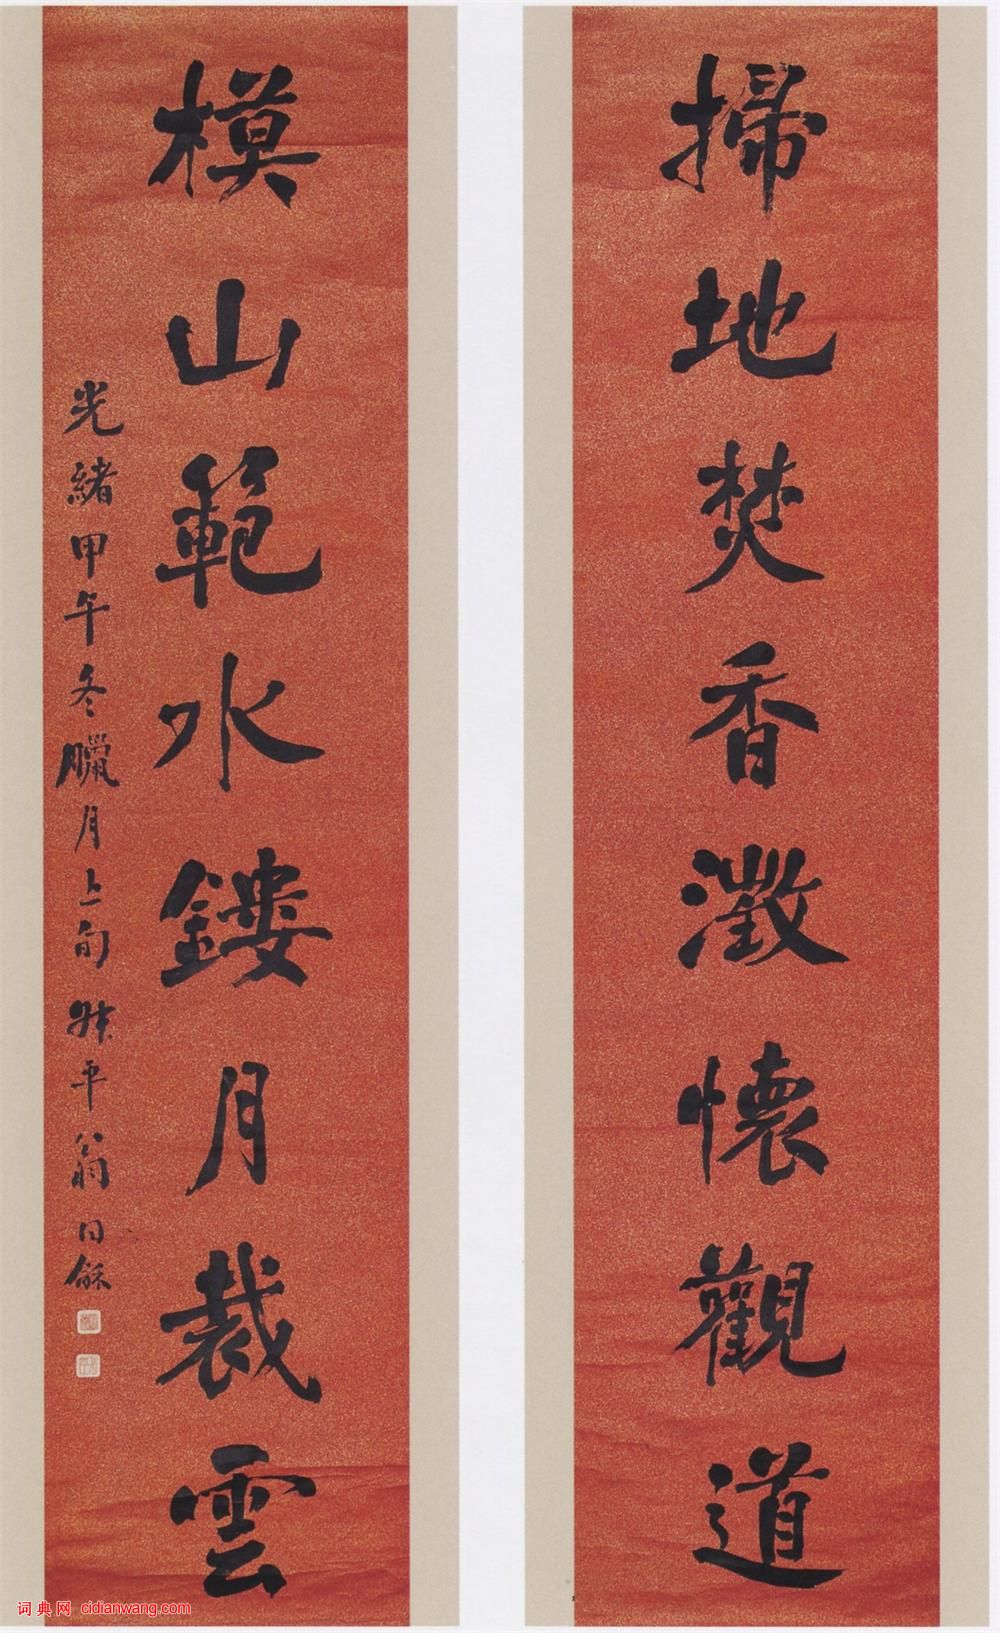 掃地焚香澂懷觀道
模山範水鏤月裁雲
光緒甲午冬臘月上旬叔平翁同龢
词典网 cidianwang.com